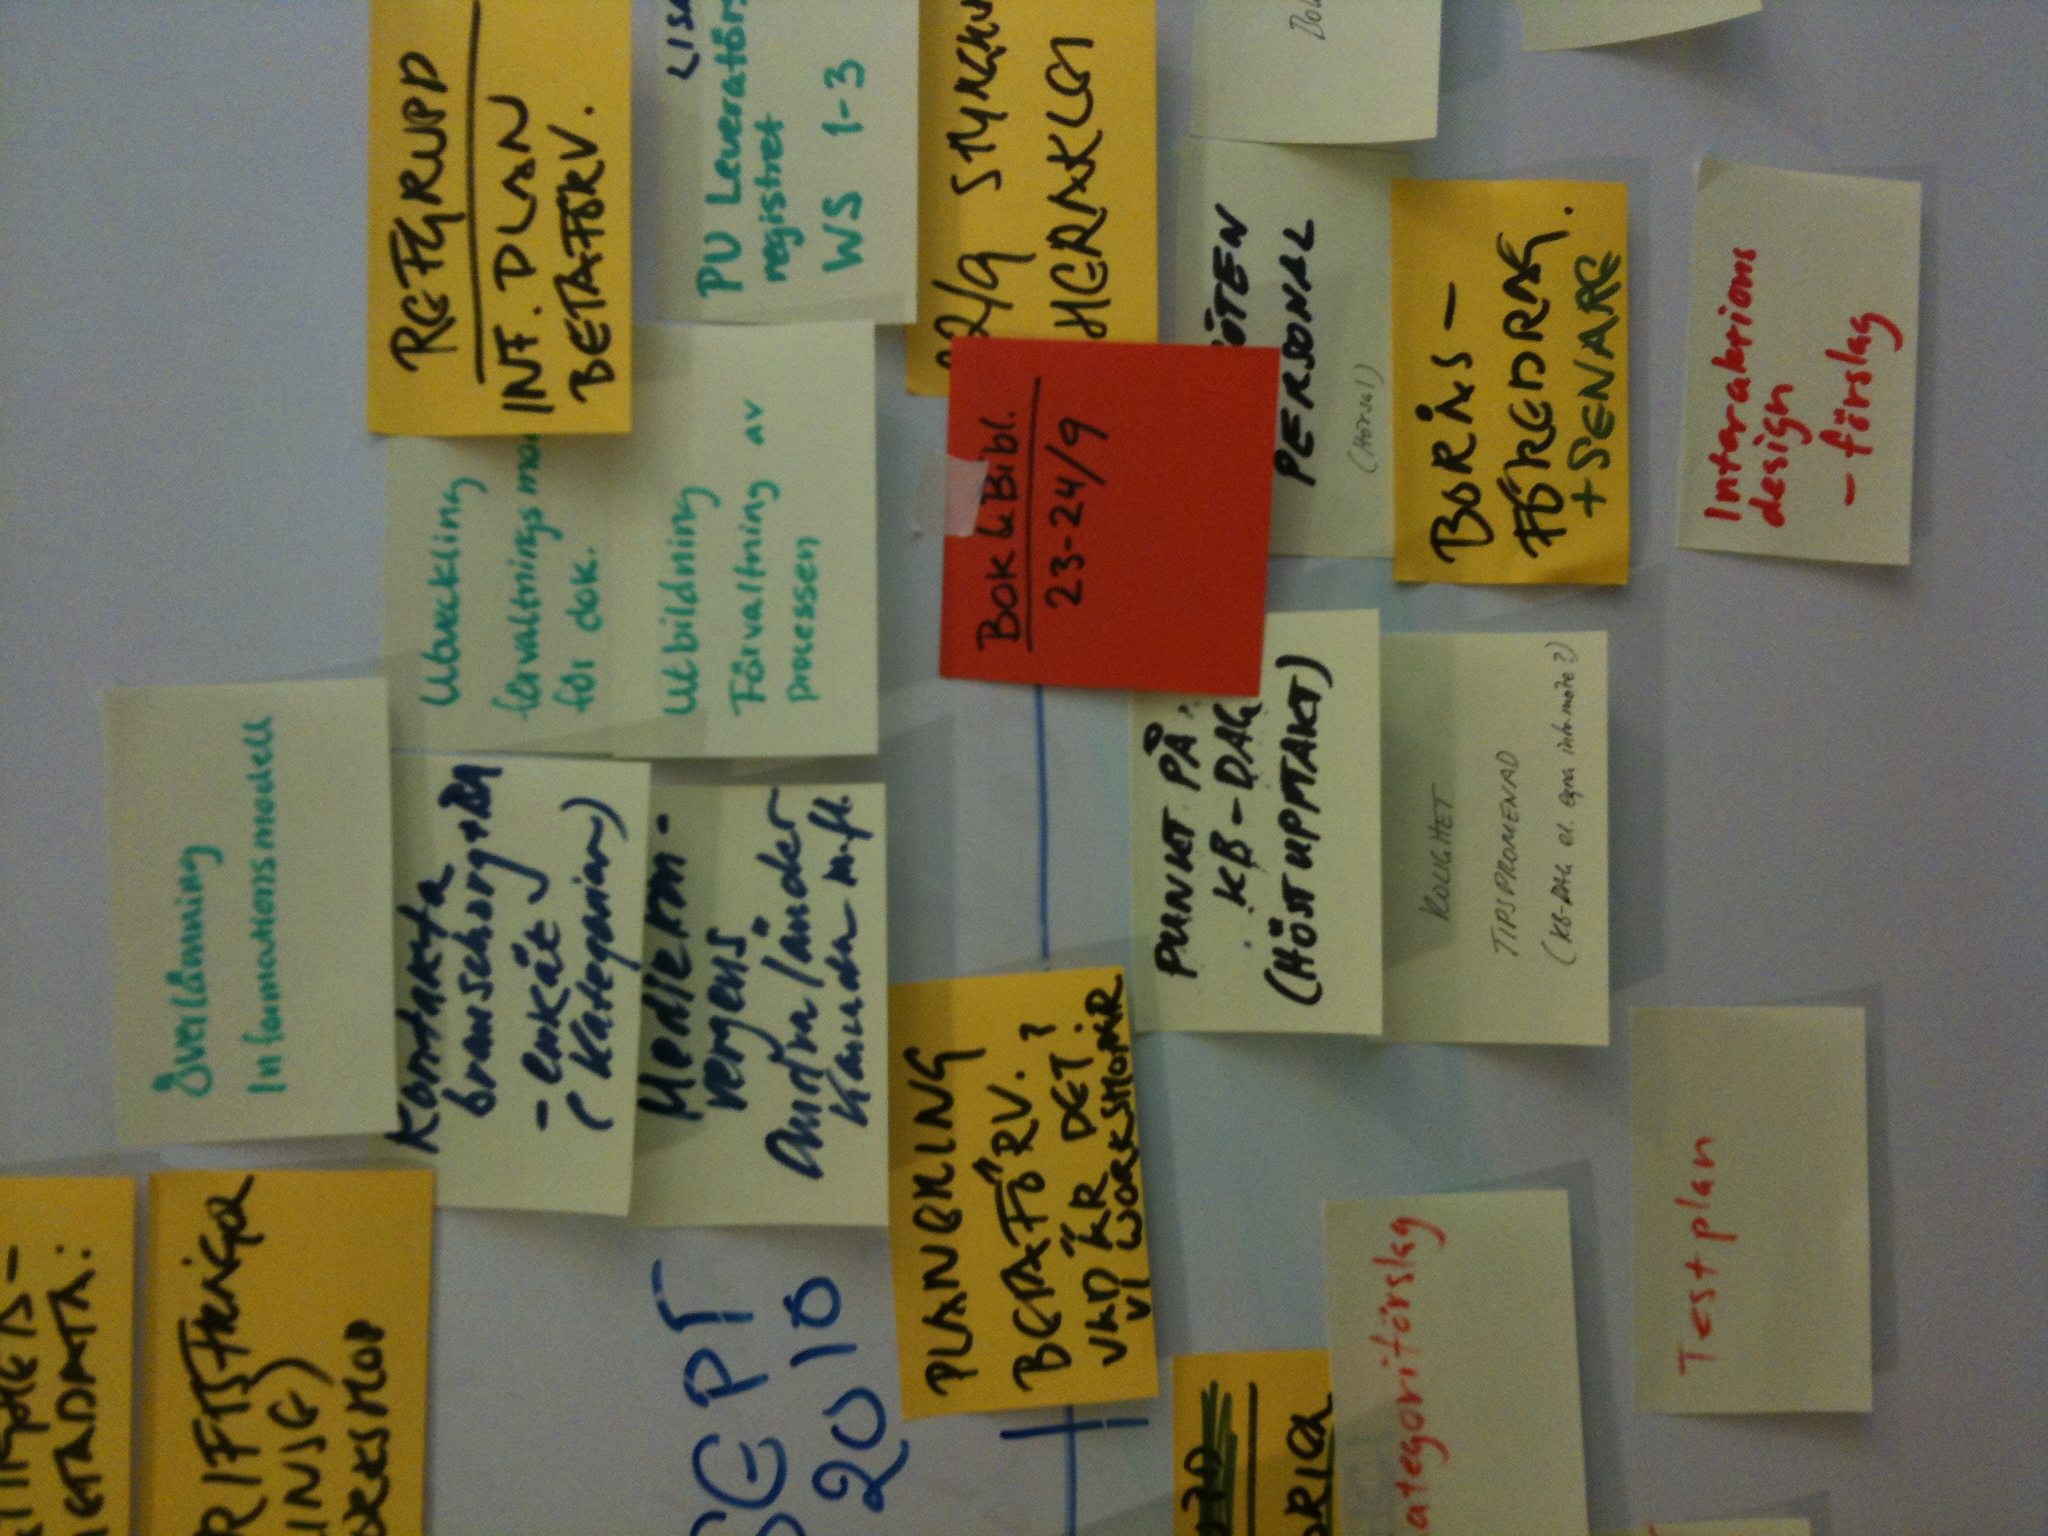 METADATA:
WORKSHOP
Överlämning
Informationsmodell
Kontakta
branschorg+BA
- enkät
(Kategorier)
Utveckling
förvaltnings
för dok.
REFGRUPP
INF. PLAN
BETAFÖRV.
SEPT
2010
Mediekon-
vergens
Andra länder
Kanada m.fl.
Utbildning
Förvaltning av
processen
LISA
PU Leveratörs
registret
WS 1-3
PLANERING
BETAFÖRV.
VAD ÄR DET?
VI WORKSHOPAR
Bok & Bibl.
23-24/9
HERAKLEI
PUNKT PÅ
KB-DAG
(HÖSTUPPTAKT)
PERSONAL
(Hörsal)
Kategoriförslag
ROLIGHET
TIPSPROMENAD
(KB-DAG el. egna infomöte?)
BORÅS-
FÖREDRAG.
+SENARE
Testplan
Interaktions
design
- förslag